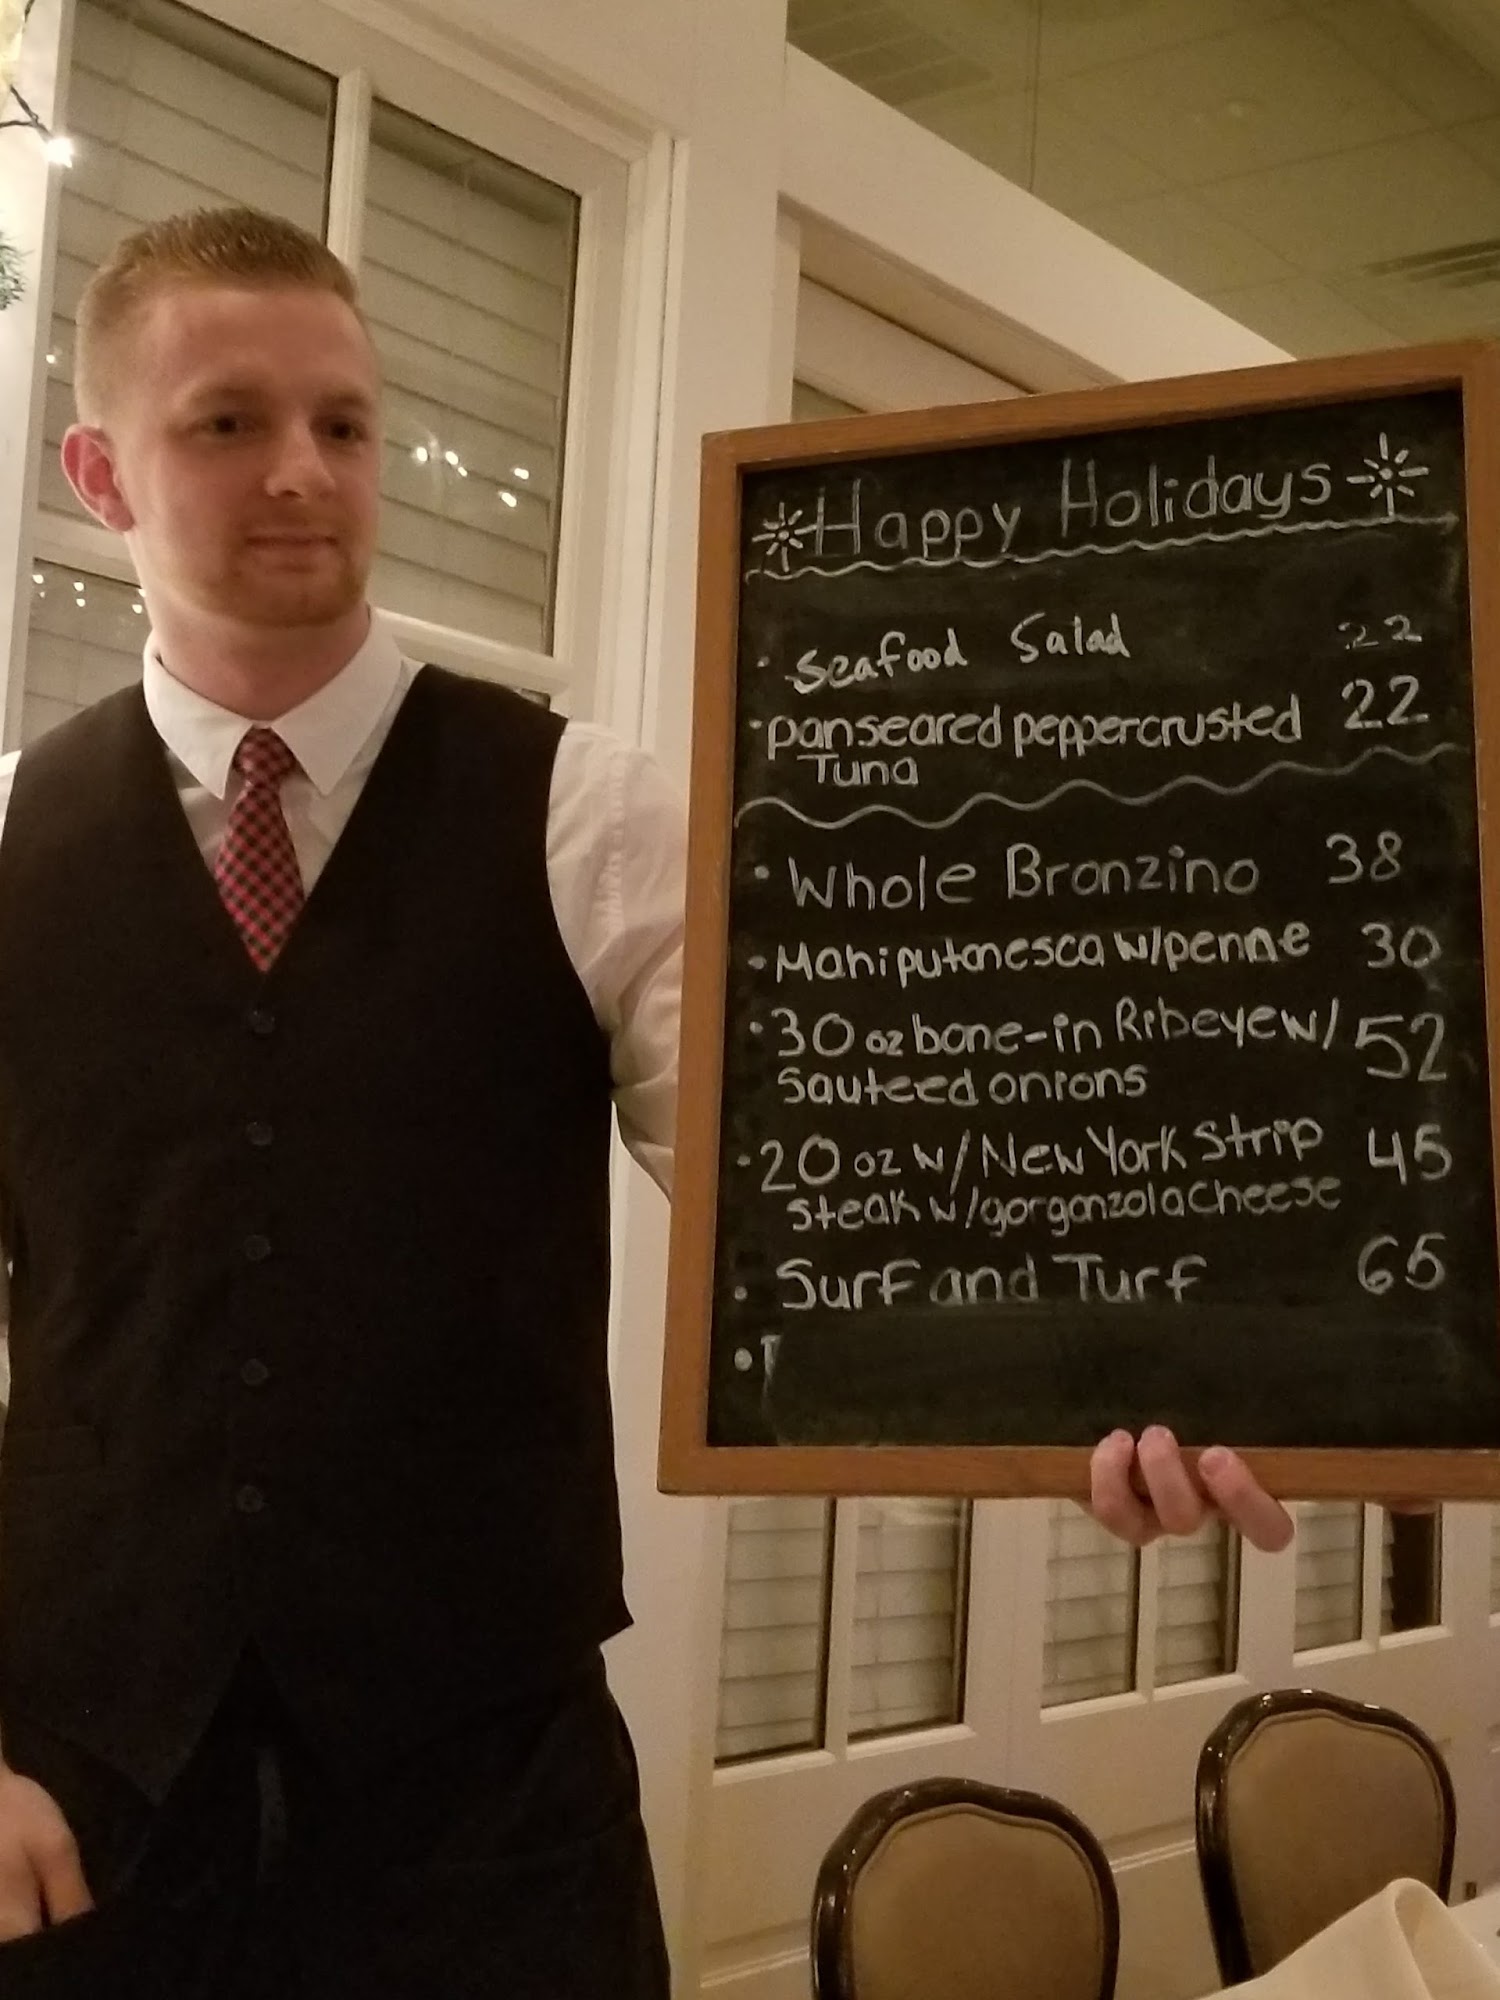 Happy Holidays
· Seafood Salad 22
· panseared peppercrusted 22
Tuna
· Whole Bronzino 38
· Mahi putanesca w/penne 30
· 30 oz bone-in Ribeye w/ 52
Sauteed onions
· 20 oz w/ New York Strip 45
steak w/gorganzola cheese
· Surf and Turf 65
·